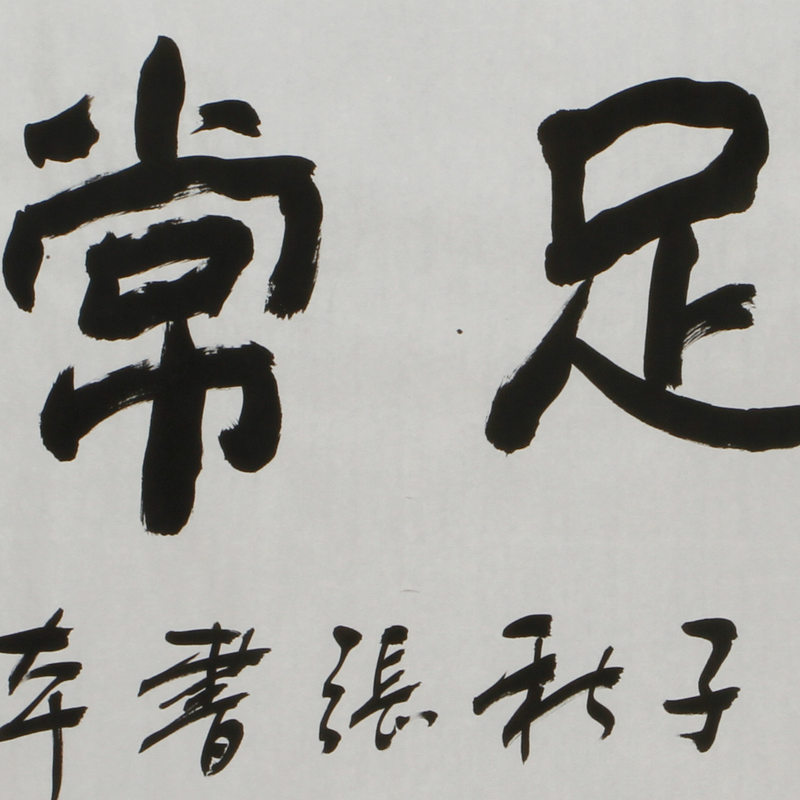 足常
子秋張書